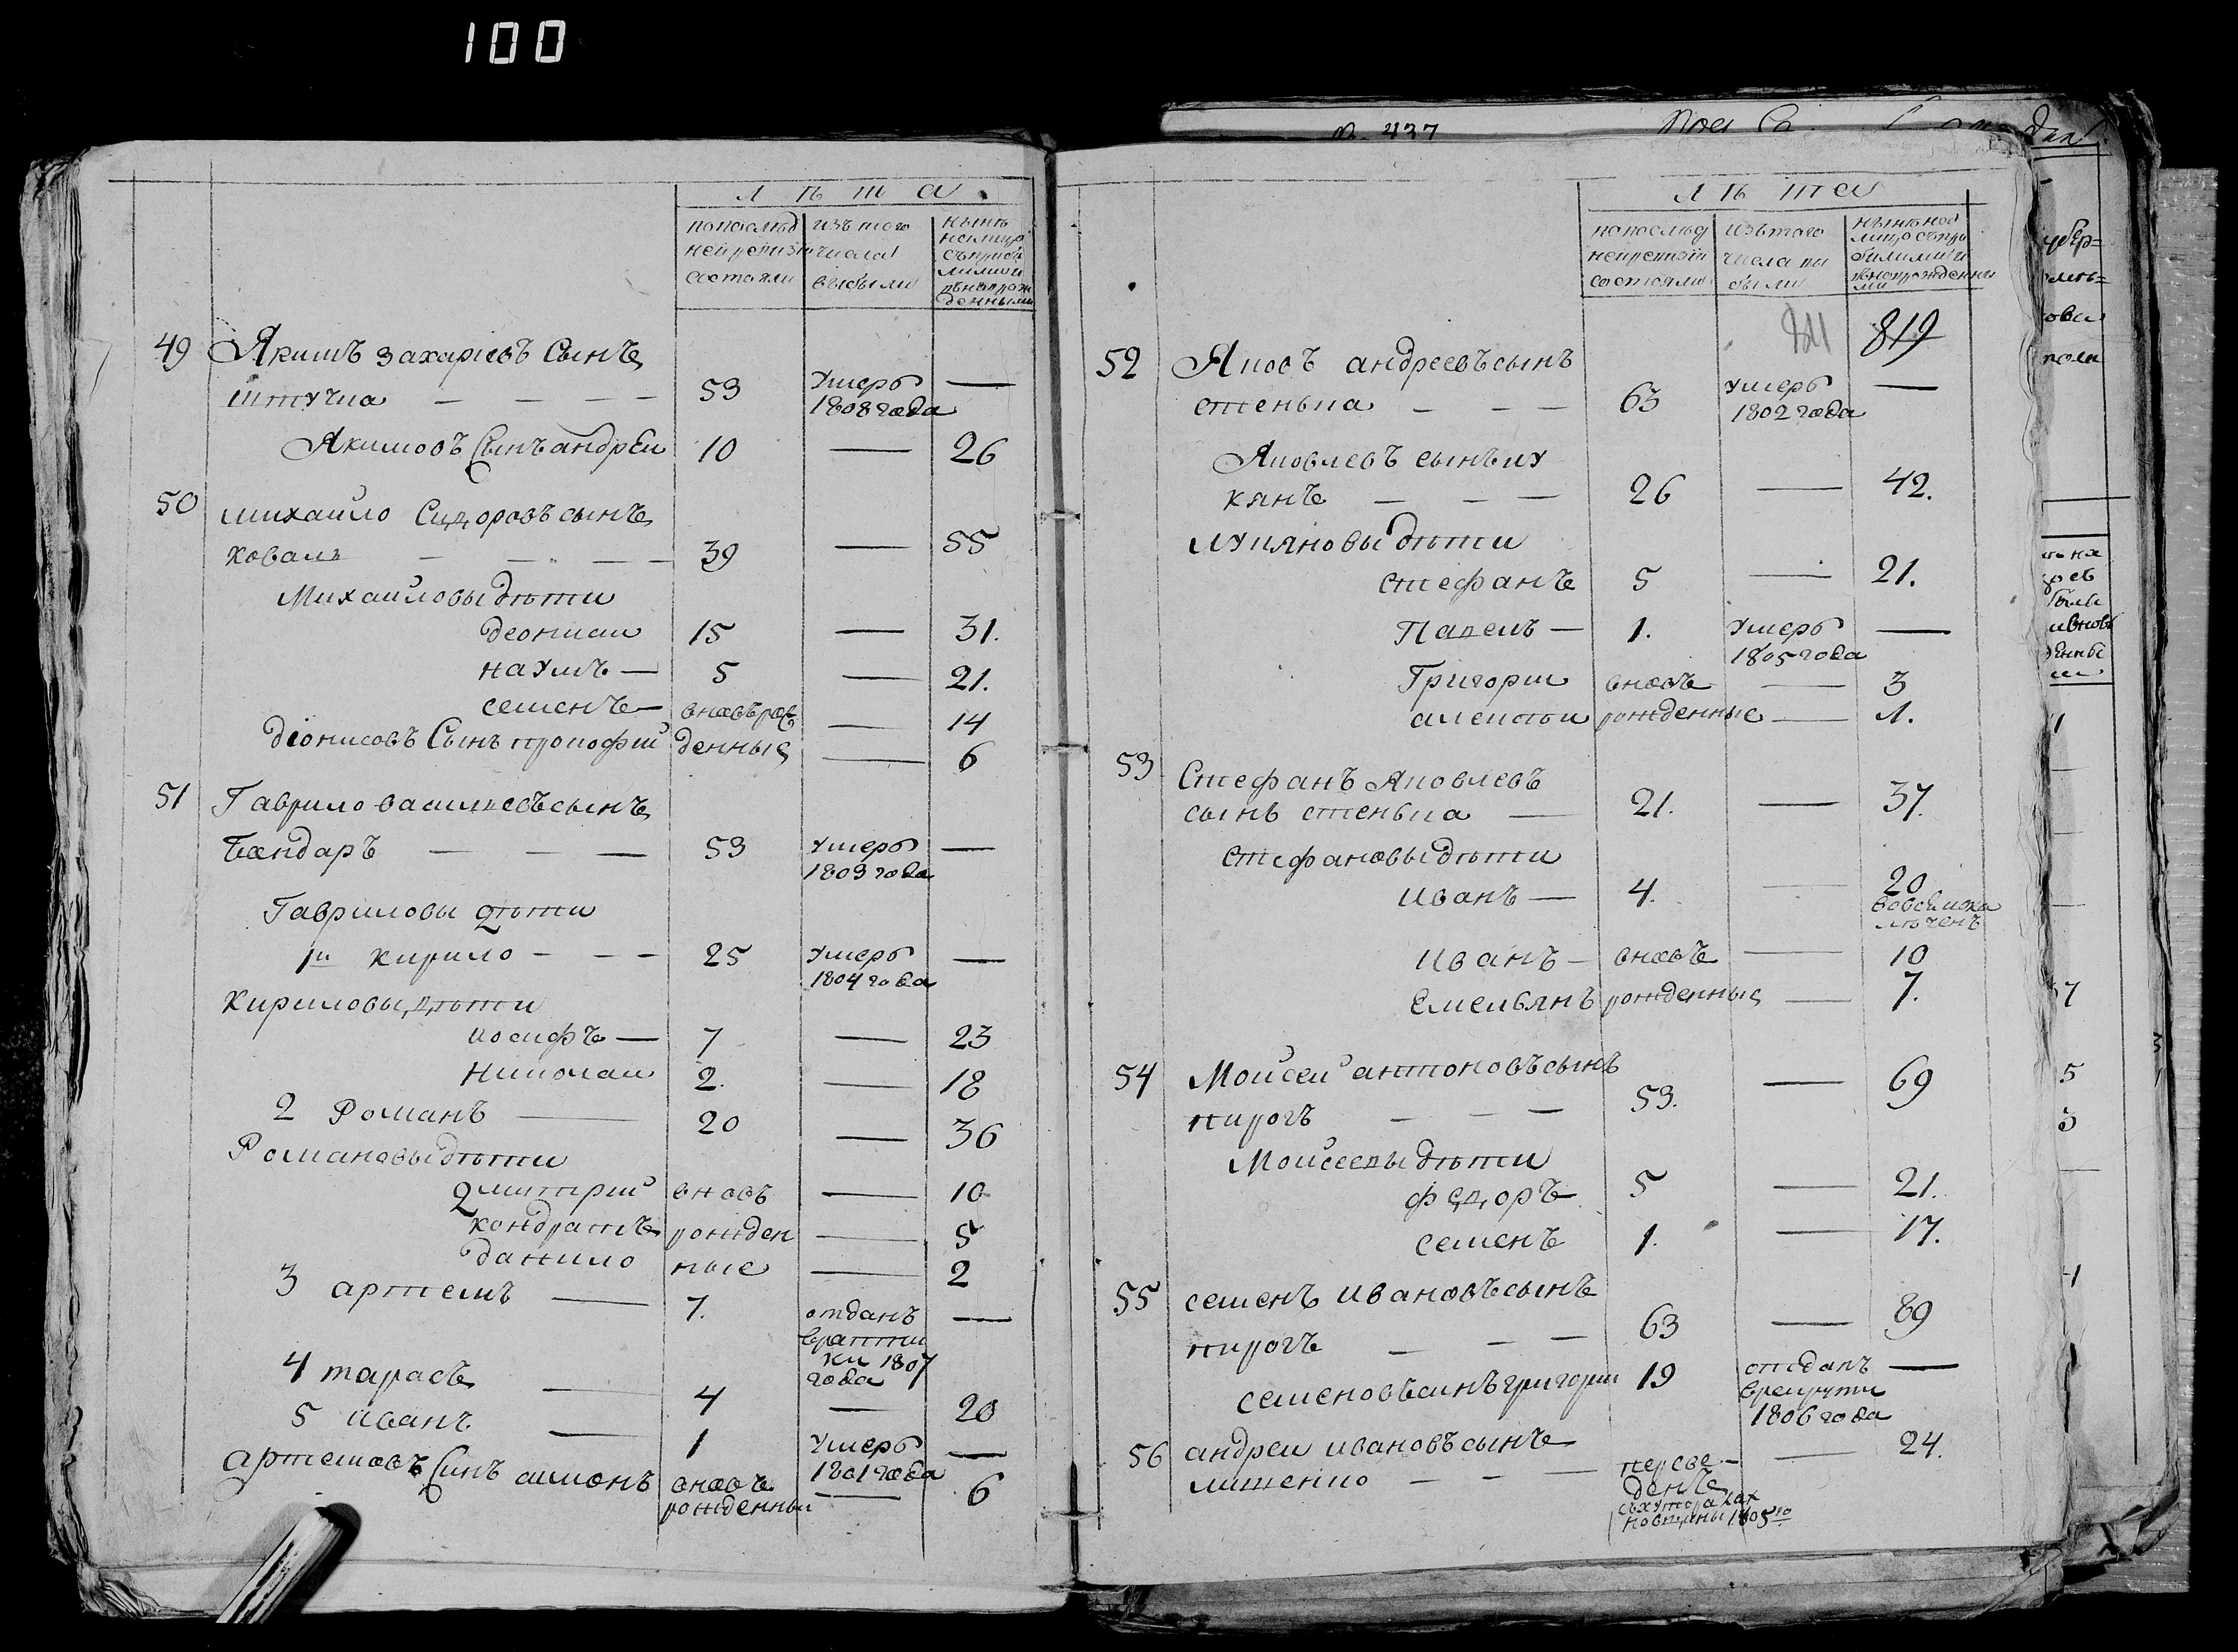 100
№ 437
лѣта
попослѣд
ней ревизіи
состояли
изъ того
числа
выбыли
нынѣ
налицо
съприбы
лыми и
вновь рож
денными
49 Якимъ захаріевъ Сынъ
штучка — — — — 53 Умеръ —
1808 года
Якимовъ Сынъ андрей 10 — 26
50 михайло Сидоровъ сынъ
коваль — — — — 39 — 55
Михайловы дѣти
деонисии 15 — 31.
наумъ — 5 — 21.
семенъ — вновь рож — 14
діонисовъ Сынъ прокофій денные — 6
51 Гаврило васильевъ сынъ
Бондаръ — — — 53 Умеръ —
1809 года
Гавриловы дѣти
1й кирило - - - 25 Умеръ —
1804 года
Кириловы дѣти
иосифъ — 7 — 23
николаи 2. — 18
2 Романъ — 20 — 36
Романовы дѣти
дмитрий вновь — 10
кондратъ рожден — 5
данило ные — 2
3 артемъ — 7. отданъ —
врекрут
ки 1807
года
4 тарасъ — 4 — 20
5 иванъ — 1 Умеръ —
1801 года
артемовъ Синъ симонъ вновь — 6
рожденныи
лѣта
попослѣд
ней ревизіи
состояли
изъ того
числа вы
были
нынѣ на
лицо съпри
былыми и
вновь рожденны
ми
811 819
52 Яковъ андреевъ сынъ
стенька — — — 63 умеръ —
1802 года
Яковлевъ сынъ лу
кянъ — — — 26 — 42.
лукяновы дѣти
стефанъ 5 — 21.
Павелъ — 1. Умеръ —
1805 года
Григории вновь — 3
алексѣи рожденные — 1.
53 Стефанъ Яковлевъ
сынъ стенька — 21. — 37.
стефановы дѣти
иванъ — 4. — 20
лѣченъ
иванъ — вновь — 10
Емельянъ рожденные — 7.
54 Мойсей антоновъ сынъ
пирогъ — — — 53. — 69
Мойсеевы дѣти
федоръ 5 — 21.
семенъ 1. — 17.
55 семенъ ивановъ сынъ
пирогъ — — 63 — 89
семеновъ синъ григорий 19 отданъ —
врекруты
1806 года
56 андреи ивановъ сынъ
литенко — — — переве- — 24.
денъ
съхутора
1805го